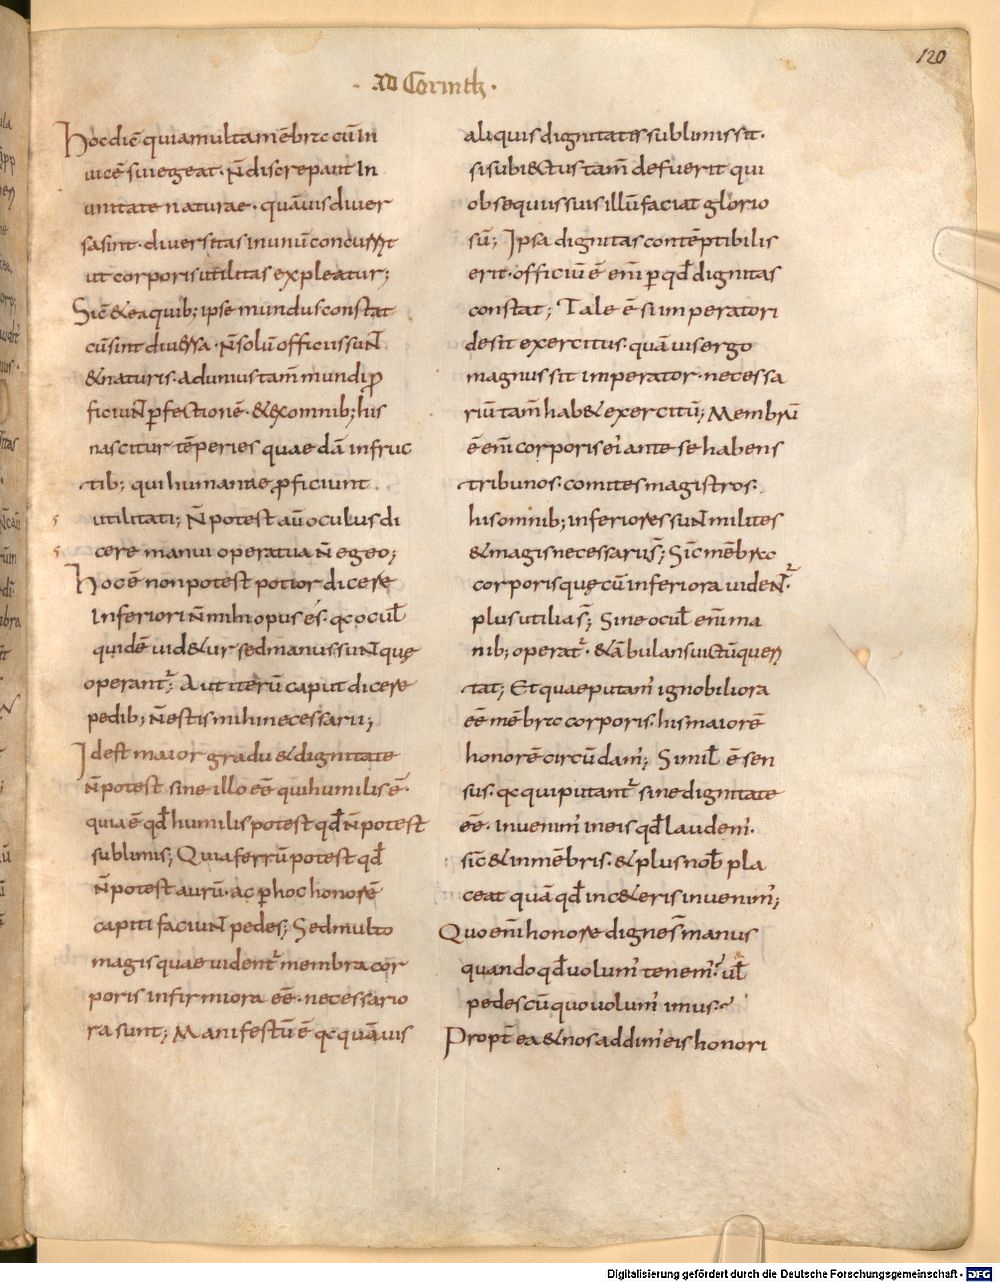 120
· AD Corinth ·
Hoc dic̄ quia multa mēbra cū In
uicē sui egeat · N̄ discrepant In
unitate naturae · quāuis diuer
sa sint · diuersitas in unū concurrit
ut corporis utilitas expleatur;
Sic̄ & ea quib; ipse mundus constat
cū sint diuersa · N̄ solū officiis suNt̄
& naturis · ad unius tam̄ mundi ꝓ
ficiuNt ꝑfectionē · & ex omnib; his
nascitur tēperies quaedā in fruc
tib; qui humanae ꝓficiunt
utilitati; N̄ potest aū oculus di
cere manui opera tua N̄ egeo;
Hoc ē non potest potior dicere
Inferiori N̄ mihi opus és · qc ocul̄
quidē uid&ur sed manus suNt quę
operant᷑; Aut iterū caput dicere
pedib; N̄ estis mihi necessarii;
Id est maior gradu & dignitate
N̄ potest sine illo eē qui humilis ē ·
quia ē qd̄ humilis potest qd̄ N̄ potest
sublimis; Quia ferrū potest qd̄
N̄ potest aurū · ac ꝑ hoc honorē
capiti faciuNt pedes; Sed multo
magis quae uident᷑ membra cor
poris infirmiora eē · necessario
ra sunt; Manifestū ē qc quāuis
aliquis dignitate sublimis sit ·
si subi&tus tam̄ defuerit qui
obsequiis suis illū faciat glorio
sū; Ipsa dignitas contēptibilis
erit · officiū ē eni̅ ꝑ qd̄ dignitas
constat; Tale ē si imperatori
desit exercitus · quāuis ergo
magnus sit imperator · necessa
riū tam̄ hab& exercitū; Membrū
ē eni̅ corporis ei᾽ ante se habens
tribunos · comites magistros ·
his omnib; inferiores suNt milites
& magis necessarii s̄; Sic̄ mēbra
corporis quę cū inferiora uideNt᷑ ·
plus utilia s̄; Sine ocul̄ eni̅ ma
nib; operat᷑ · & ābulans uictū quęri
tat; Et quae putam᾽ ignobiliora
eē mēbra corporis · his maiorē
honorē circūdam᾽; Simil̄ ē sen
sus · qc qui putant᷑ sine dignitate
eē · inuenim᾽ in eis qd̄ laudem᾽ ·
sic̄ & in mēbris · & plus nob̄ pla
ceat quā qd̄ in c&eris inuenim᾽;
Quo eni̅ honore dignę s̄ manus
quando qd̄ uolum᾽ tenem᾽ · ul̄
pedes cū quo uolum᾽ imus ·
Propt̄ ea & nos addim᾽ eis honori
Digitalisierung gefördert durch die Deutsche Forschungsgemeinschaft - DFG